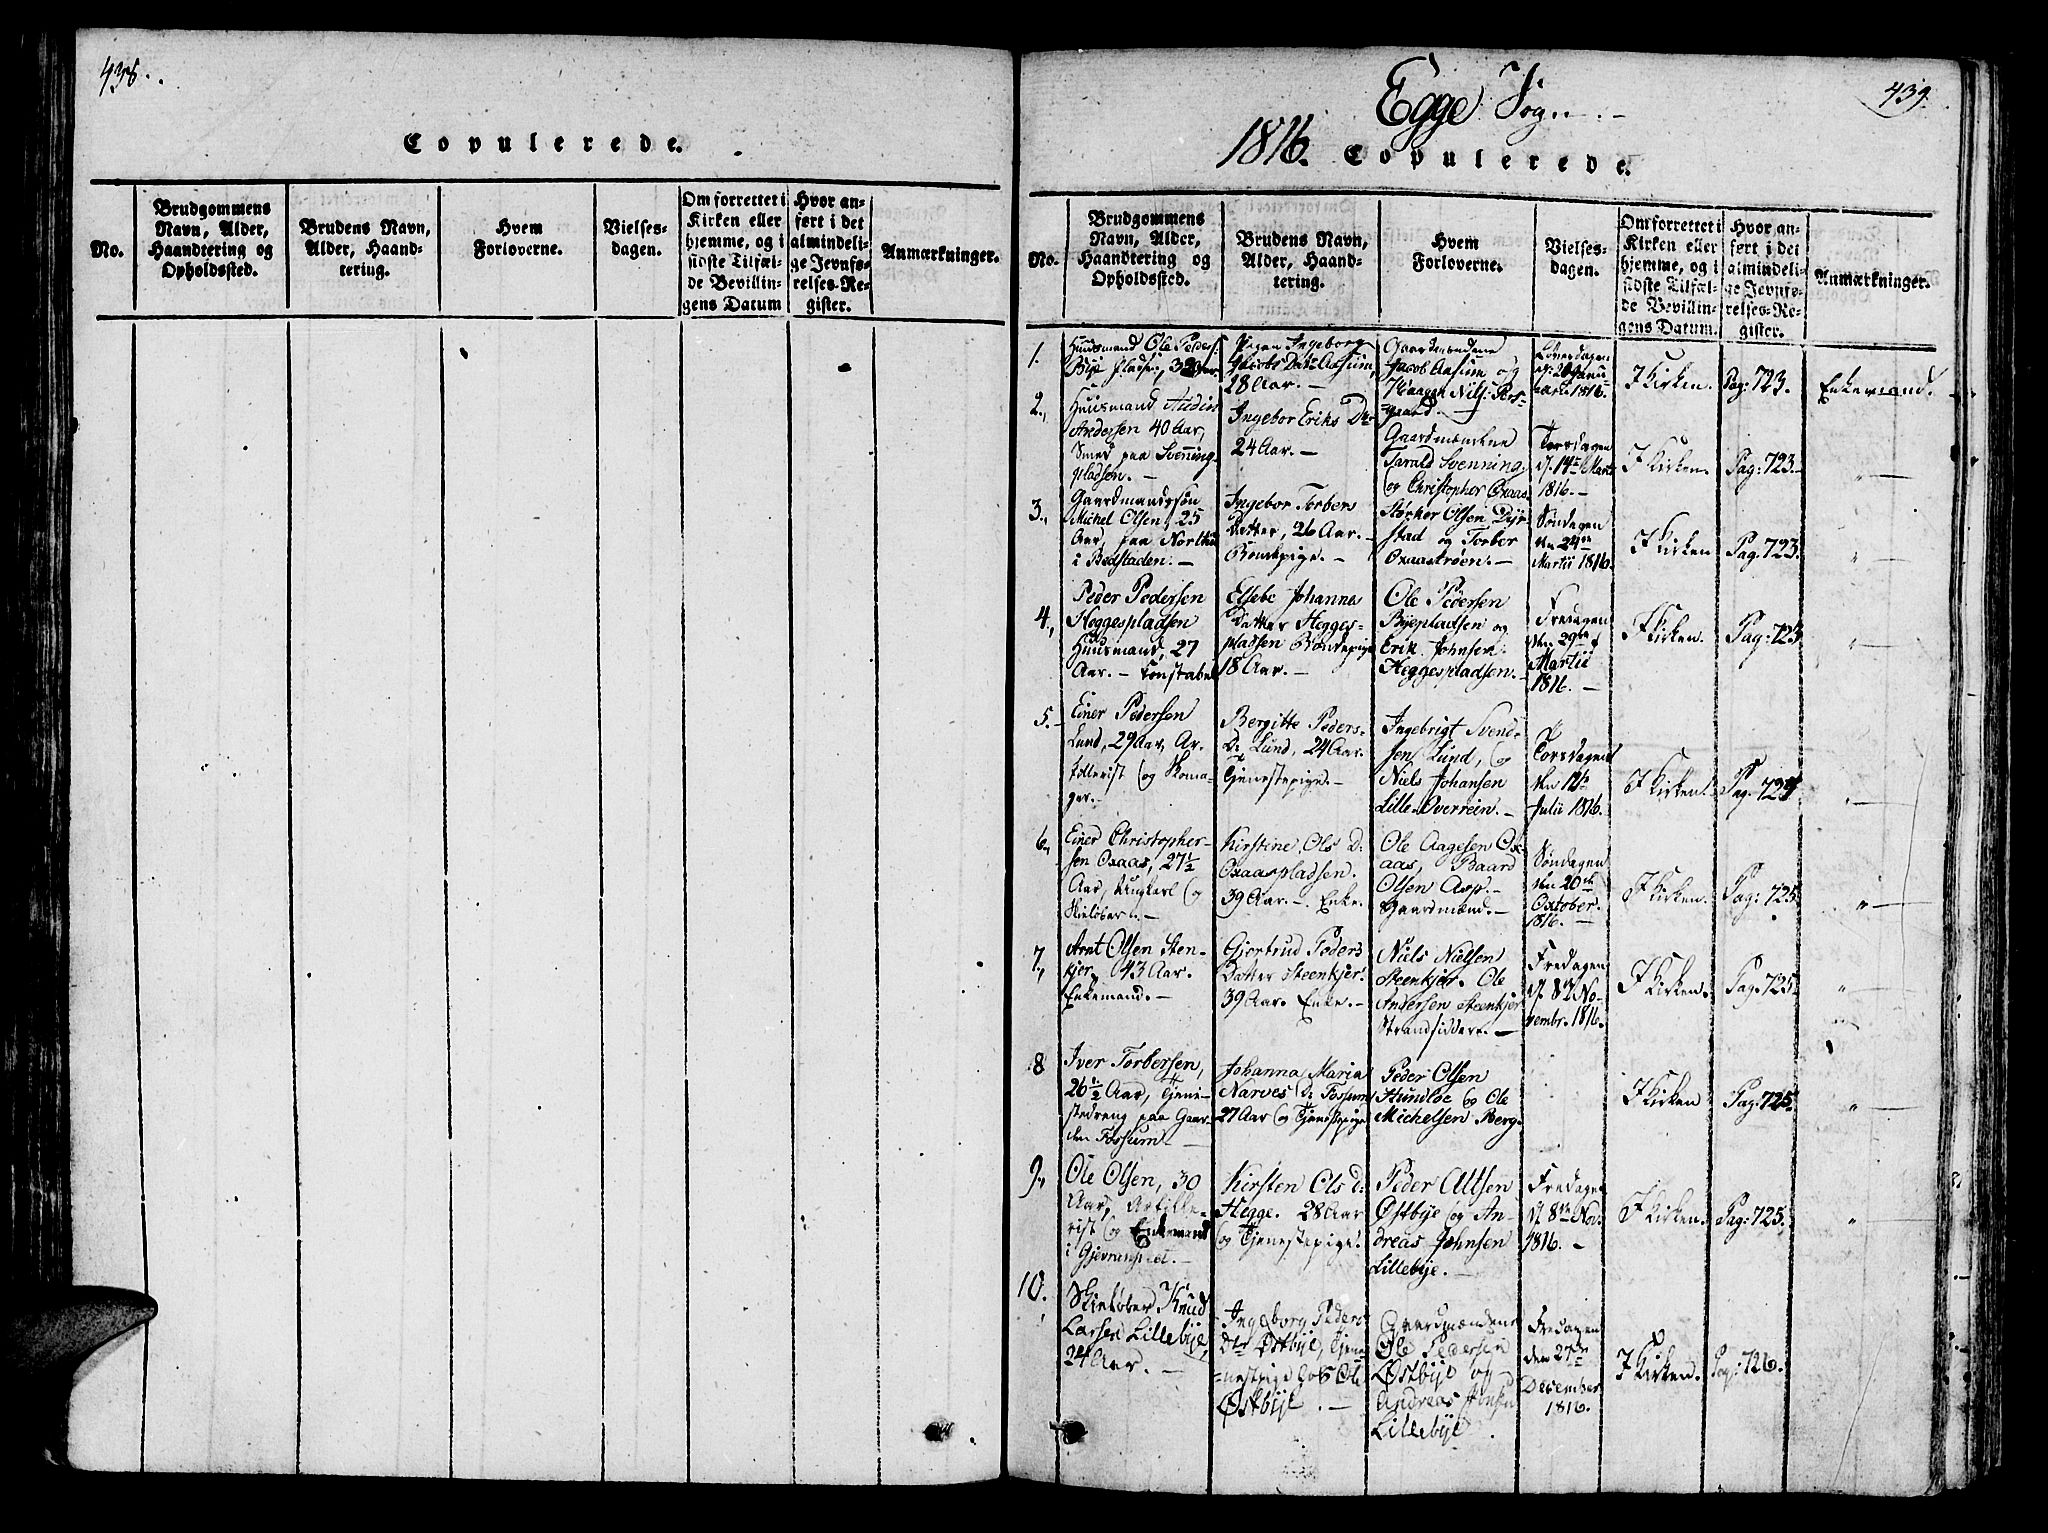 438.
Copulerede.
No.
Brudgommens
Navn, Alder,
Haandtering og
Opholdssted.
Brudens Navn,
Alder, Haand-
tering.
Hvem
Forloverne.
Vielses-
dagen.
Om forrettet i
Kirken eller
hjemme, og i
sidste Tilfæl-
de Bevillin-
gens Datum
Hvor an-
ført i det
almindeli-
ge Jevnfø-
relses-Re-
gister.
Anmærkninger.
Egge Sogn.
439.
1816. Copulerede.
No.
Brudgommens
Navn, Alder,
Haandtering og
Opholdssted.
Brudens Navn,
Alder, Haand-
tering.
Hvem
Forloverne.
Vielses-
dagen.
Om forrettet i
Kirken eller
hjemme, og i
sidste Tilfæl-
de Bevillin-
gens Datum.
Hvor an-
ført i det
almindeli-
ge Jevnfø-
relses-Re-
gister.
Anmærkninger.
1.
Huusmand Ole Peders:
Bije pladsen,
Pigen Ingeborg
Jacobs Datr Aasum,
28 Aar. —
Gaardmændene
Jacob Aasum og
Haagen Nils:
gaard. —
Løverdagen
1816.
I Kirken.
Pag: 723.
Enkemand.
2.
Huusmand Audin
Andersen 40 Aar,
Smed paa Svenning
pladsen. —
Ingebor Eriks Dr
24 Aar. —
Gaardmændene
Tarald Svenning,
og Christopher Oxaas
Torsdagen
d. 14de Marti
1816. —
I Kirken.
Pag: 723. —
" —
3.
Gaardmandssøn
Michel Olsen, 25
Aar, paa
i Bedstaden. —
Ingebor Torbers
Datter, 26 Aar. —
Bondepige. —
Størker Olsen Dyr-
stad og Torber
Oxaastrøen. —
Søndagen
den 24de
Martii 1816.
I Kirken
Pag. 723.
" —
4.
Peder Pedersen
Heggespladsen
Huusmand, 27
Aar. — Constabel
Elsebe Johanna
Datter Hegges-
pladsen Bondepige
18 Aar. —
Ole Pedersen
Bijepladsen og
Erik Johnsen
Heggespladsen. —
Fredagen
den 29de
Martii
1816. —
I Kirken.
Pag: 725
" —
5. —
Einer Pedersen
Lund, 29 Aar, Ar-
tillerist og Skoma-
ger. —
Bergitte Peders-
Dr Lund, 24 Aar.
Tjenestepige. —
Ingebrigt Svend-
sen Lund, og
Niels Johansen
Lille-Overrein. —
Torsdagen
den
Julii 1816.
I Kirken.
Pag. 725
" —
6.
Einer Christopher-
sen Oxaas, 27½
Aar, Ungkarl og
Skieløber. —
Kirstine Ols D:
Oxaaspladsen.
39 Aar. — Enke.
Ole Aagesen Ox-
aas, Baard
Olsen Asp. —
Gaardmænd. —
Søndagen
den 20de
October.
1816. —
I Kirken.
Pag: 725.
" —
7.
Arnt Olsen Sten-
kjer, 43 Aar.
Enkemand. —
Gjertrud Peders
Datter Steenkjer.
39 Aar. Enke. —
Niels Nielsen
Steenkjer. Ole
Andersen Steenkjer
Strandsiddere. —
Fredagen
d. 8de No-
vembr. 1816.
I Kirken.
Pag: 725.
" —
8
Iver Torbersen,
26½ Aar, Tjene-
stedreng paa Gaar-
den Fossum. —
Johanna Maria
Narves D: Fossum
27 Aar og Tjenestepige
Peder Olsen
Hundloe og Ole
Michelsen Berg.
I Kirken
Pag: 725.
" —
9.
Ole Olsen, 30
Aar, Artille-
rist og Enkemand
i
Kirsten Ols D:
Hegge. 28 Aar
og Tjenestepige.
Peder Altsen
Østbije og An-
dreas Johnsen
Lillebije. —
Fredagen
d. 8de Nov.
1816. —
I Kirken.
Pag: 725.
" —
10.
Skieløber Knud
Larsen Lillebije,
24 Aar. —
Ingeborg Peders
Dtr Østbije, Tjene-
nestepige hos Ole
Østbije. —
Gaardmændene
Ole Pedersen
Østbije og
Andreas Jonsen
Lillebije.
Fredagen
den 27de
December
1816.
I Kirken.
Pag: 726.